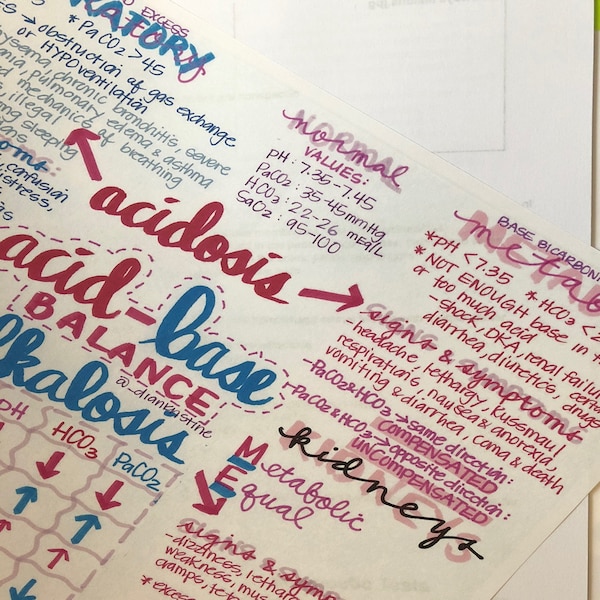 EXCESS
RATORY
*PaCO₂ > 45
→ obstruction of gas exchange
or HYPOventilation
chronic bronchitis, severe
pulmonary edema & asthma
mechanics of breathing
illegal
sleeping
confusion
acidosis
acid-base
BALANCE
@_diankristine
alkalosis
pH HCO₃ PaCO₂
↓ ↓
↑ ↑
↓ ↑
↑ ↓
normal
VALUES:
pH: 7.35-7.45
PaCO₂: 35-45mmHg
HCO₃: 22-26 mEq/L
SaO₂: 95-100
BASE BICARBON
metab
*pH < 7.35 *HCO₃ < 2
*NOT ENOUGH base in
or too much acid
-shock, DKA, renal failu
diarrhea, diuretics,
drugs
signs & symptoms
-headache, lethargy, kussmaul
respirations, nausea & anorexia,
vomiting & diarrhea, coma & death
-PaCO₂&HCO₃ → same direction:
COMPENSATED
-PaCO₂&HCO₃ → opposite direction:
UNCOMPENSATED
KIDNEYS
kidneys
Metabolic
Equal
signs & symp
-dizziness, letharg
weakness, mus
cramps, tet
*excess